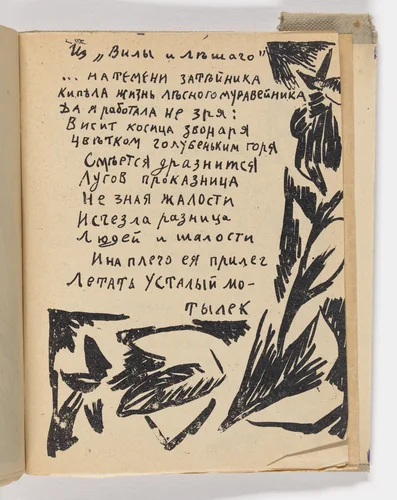 Из „Вилы и лѣшаго"
... на темени затѣйника
кипѣла жизнь лѣсного муравейника
Да я работала не зря:
Висит косица звонаря
цвѣтком голубеньким горя
Смѣется дразнится
Лугов проказница
Не зная жалости
Исчезла разница
Людей и шалости
И на плего ея прилег
Летать усталый мо-
тылек